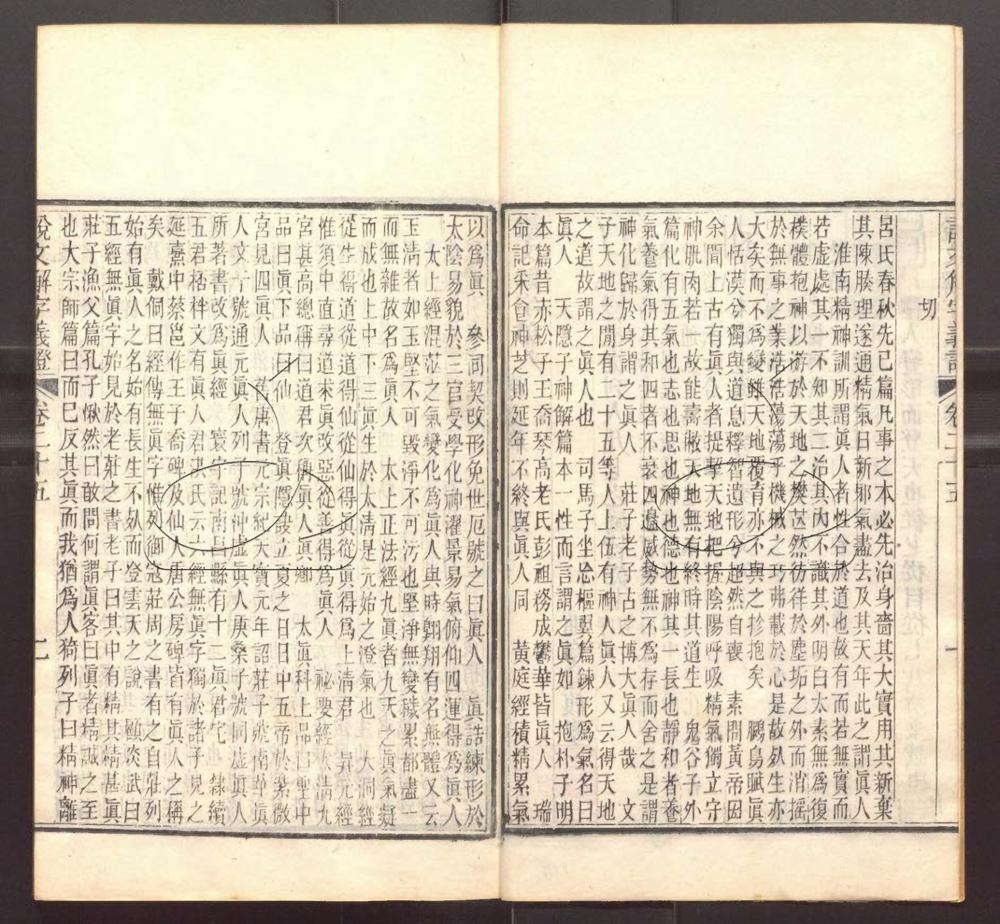 切
呂氏春秋先己篇凡事之本必先治身嗇其大寶用其新棄
其陳腠理遂通精氣日新邪氣盡去及其天年此之謂眞人
淮南精神訓所謂眞人者性合於道也故有而若無實而
若虛處其一不知其二治其內不識其外明白太素無為復
樸體抱神以游於天地之樊芒然彷徉於塵垢之外而消搖
於無事之業浩浩蕩蕩乎機械之巧弗載於心是故死生亦
大矣而不為變雖天地覆育亦不與之抮抱矣 鵬鳥賦眞
人恬漠兮獨與道息釋智遺形兮超然自喪 素問黃帝曰
余聞上古有眞人者提挈天地把握陰陽呼吸精氣獨立守
神肌肉若一故能壽敝天地無有終時此其道生 鬼谷子外
篇化有五氣也志也思也神也德也神其一長也靜和者養
氣養氣得其和四者不衰四邊威勢無不為存而舍之是謂
神化歸於身謂之眞人 莊子老子古之博大眞人哉 文
子天地之間有二十五等人上五有神人眞人 又云得天地
之道故謂之眞人也 司馬子坐忘樞翼篇鍊形為氣名曰
眞人 天隱子神解篇本一性而言謂之眞如 抱朴子明
本篇昔赤松子王喬琴高老氏彭祖務成鬱華皆眞人 瑞
命記采食神芝則延年不終與眞人同 黃庭經積精累氣
以為眞 參同契改形免世厄號之曰眞人 眞誥練形於
太陰易貌於三官受學化神濯景易氣俯仰四運得為眞人
太上經混茫之氣變化為眞人與時翺翔有名無體又云
玉淸者如玉堅不可毀淨不可污也堅淨無變穢累都盡一
而無雜故名為眞人 太上正法經九眞者九天之眞氣凝
而成也上中下三眞生於太淸是元始之澄氣也 大洞經
從生得道從道得仙從仙得眞從眞得為上淸君 昇元經
惟須中直尋道求眞改惡從善得為眞人 祕要經太淸九
宮其高總稱曰道君次稱眞人眞卿 太眞科上品曰聖中
品曰眞下品曰仙 登眞隱訣立夏之日日中五帝於紫微
宮見四眞人 舊唐書元宗紀天寶元年詔莊子號南華眞
人文子號通元眞人列子號沖虛眞人庚桑子號同虛眞人
所著書改為眞經 寰宇記南昌縣有十二眞君宅 隸續
五君桮柈文有眞人君 洪氏云六經無眞字獨於諸子見之
延熹中蔡邕作王子喬碑及仙人唐公房碑皆有眞人之稱
矣 戴侗曰經傳無眞字惟列御寇莊周之書有之自莊列
始有眞人之名始有長生不死而登雲天之說 顧炎武曰
五經無眞字始見於老莊之書老子曰其中有精其精甚眞
莊子漁父篇孔子愀然曰敢問何謂眞客曰眞者精誠之至
也大宗師篇曰而已反其眞而我猶為人猗列子曰精神離
說文解字義證 卷二十五